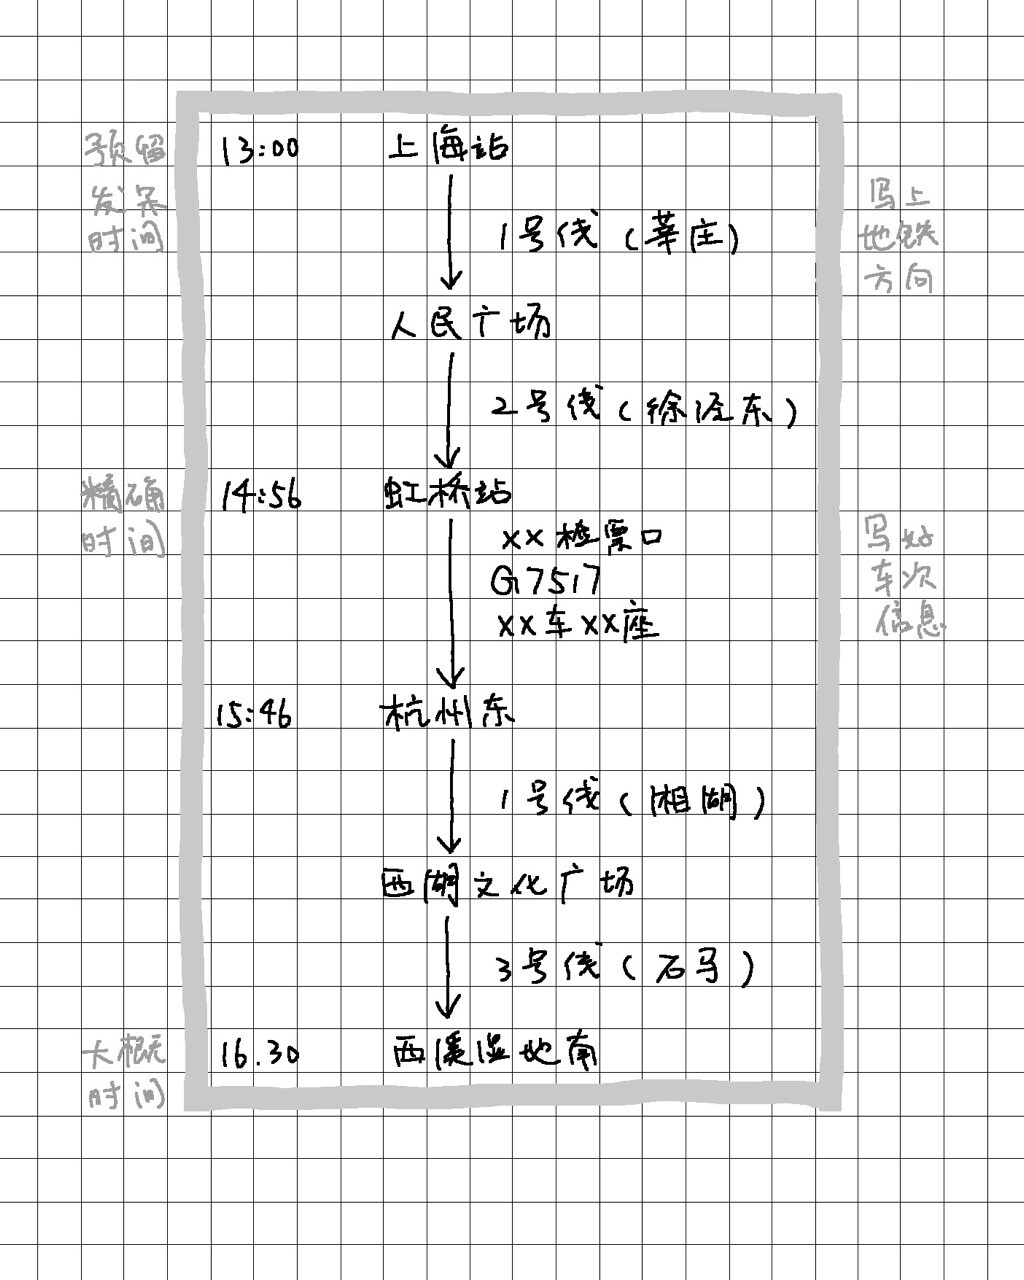 预留
发呆
时间
13:00 上海站
1号线(莘庄)
写上
地铁
方向
人民广场
2号线(徐泾东)
精确
时间
14:56 虹桥站
xx检票口
G7517
xx车xx座
写好
车次
信息
15:46 杭州东
1号线(湘湖)
西湖文化广场
3号线(石马)
大概
时间
16.30 西溪湿地南